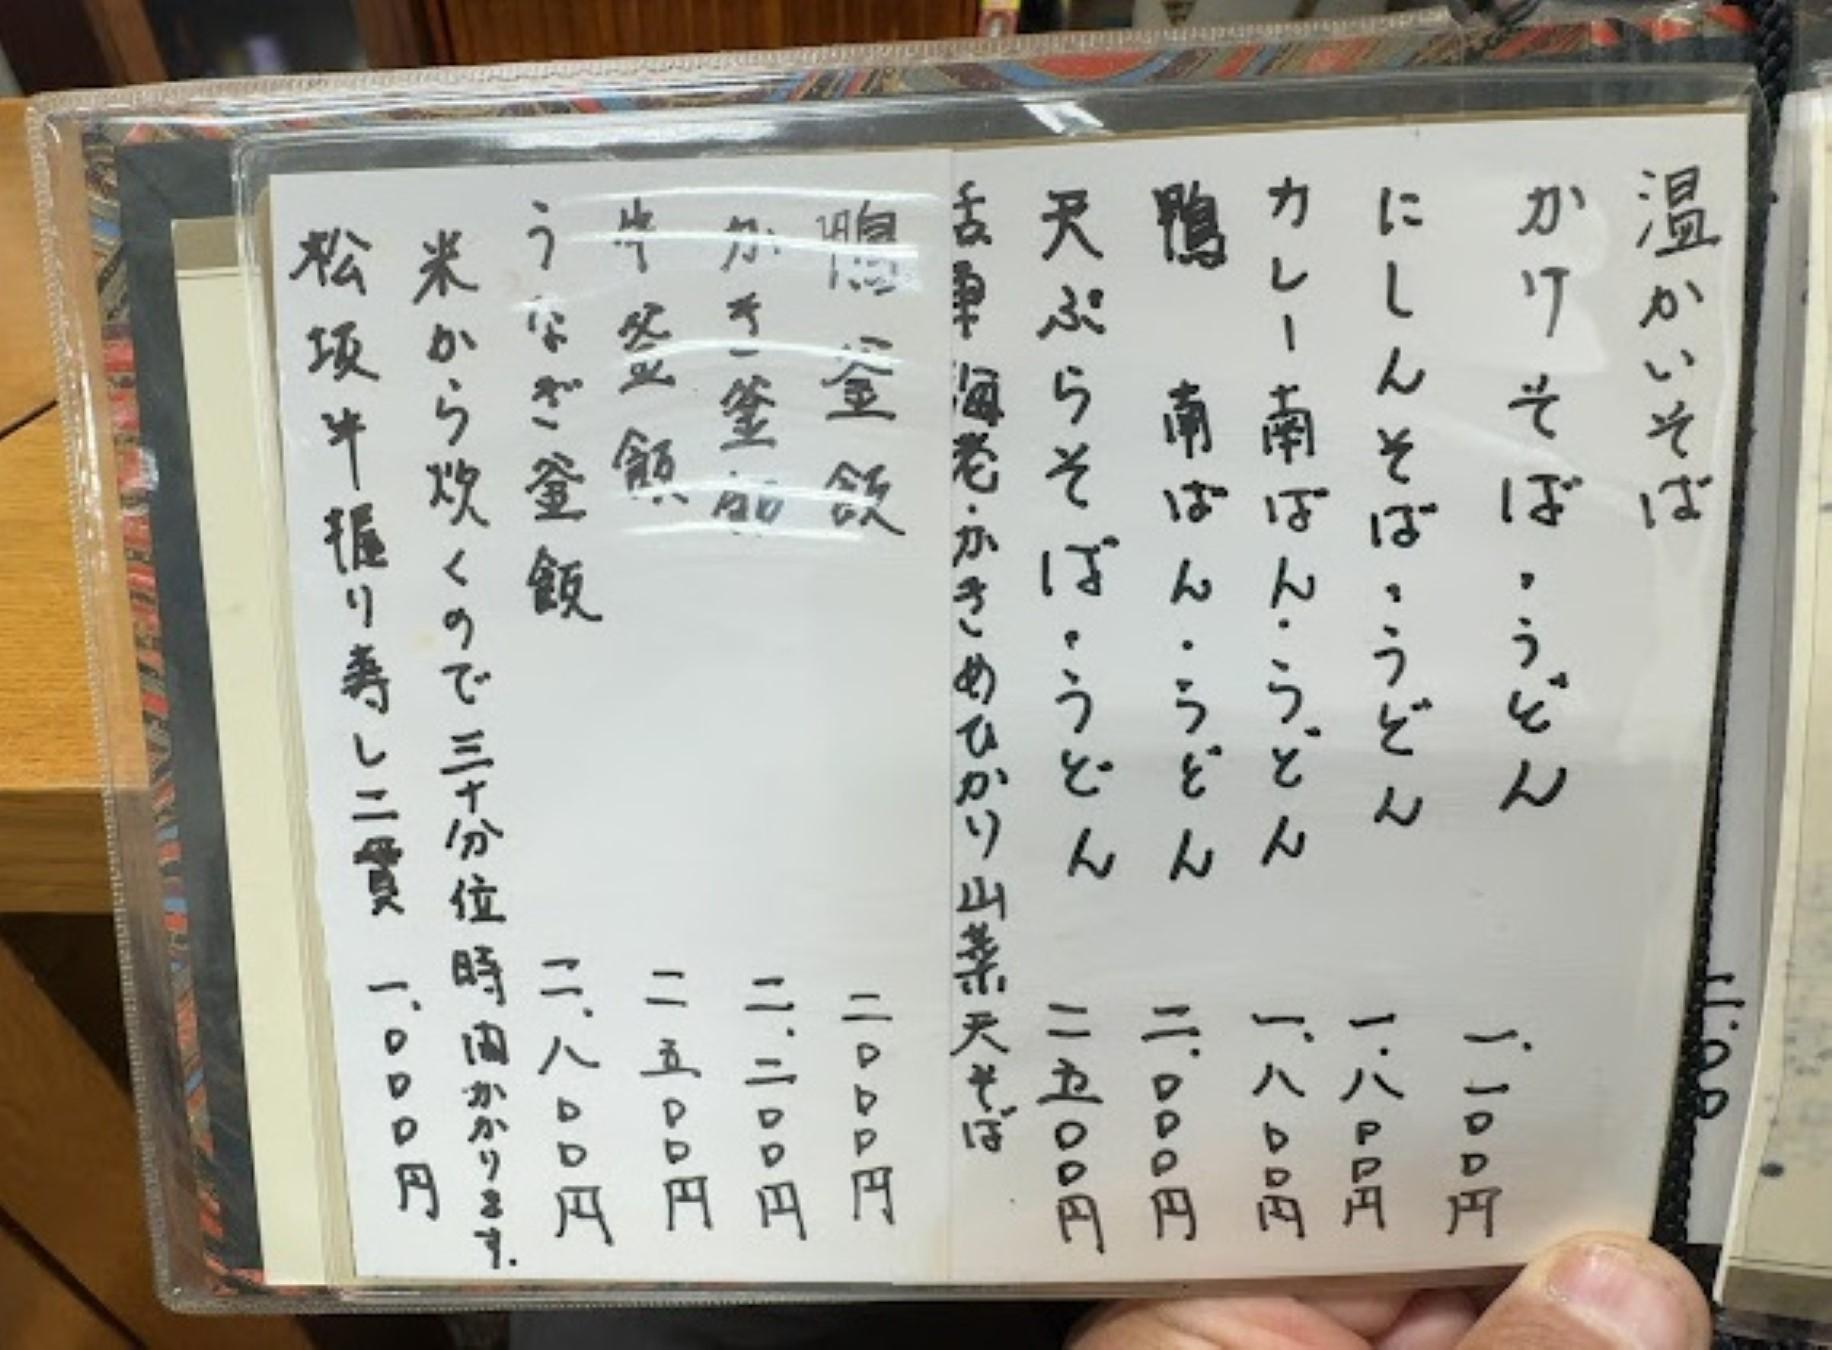 温かいそば
かけそば・うどん 一、一〇〇円
にしんそば・うどん 一、八〇〇円
カレー南ばん・うどん 一、八〇〇円
鴨南ばん・うどん 二、〇〇〇円
天ぷらそば・うどん 二五〇〇円
海老・かきめひかり山菜天そば
鴨釜飯 二〇〇〇円
かき釜飯 二、二〇〇円
牛釜飯 二五〇〇円
うなぎ釜飯 二、八〇〇円
米から炊くので三十分位時間かかります。
松坂牛握り寿し二貫 一、〇〇〇円